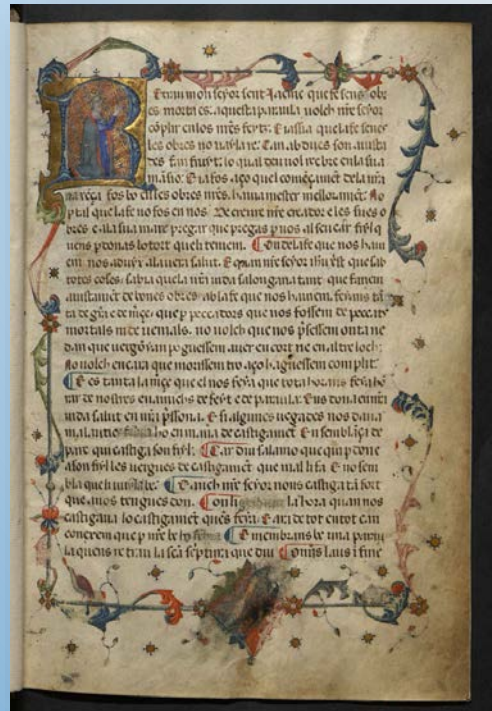 Retrau mon seyor sent Jacme que fe sens obr
es morta es. aquesta paraula uolch nre seyor
cōplir en los nr̄es feyts. E iassia que la fe senes
les obres no ualya re. Can abdues son aiusta
des fan fruyt: lo qual deu uol reebre en la sua
māsio. E ia fos aço quel comēçamēt dela nr̄a
naxēça fos bo en les obres nr̄es. hauia mester melloramēt. No
p tal que la fe no fos en nos. De creure nr̄e creador e les sues o
bres e ala sua mare pregar que pregas p nos al seu car fiyl q
uens pdonas lo tort queli teniem. On dela fe que nos hauí
em. nos aduyx ala uera salut. E quan nr̄e seyor ih̄u xst̄ que sab
totes coses. sabia que la nr̄a uida salongaria tant que fariem
aiustamēt de bones obres ab la fe que nos hauiem. feyans tā
ta de gr̄a e de mc̄e. que p peccadors que nos fossem de peccatz
mortals ni de uenials. no uolch que nos pseessem onta ne
dan que uergōya n poguessem auer en cort ne en altre loch:
No uolch encara que morissem tro aço haguessem complit.
E es tanta la mc̄e que el nos feya que tota hora ns feya hō
rar de nostres enamichs de feyt e de paraula. E ns dona en nr̄a
uida salut en nr̄a pssona. E si algunes uegades nos daua
malauties ho en mana de castigamēt. En semblāça de
pare qui castiga son fiyl. Car diu salamo que qui pdone
a son fiyl les uergues de castigamēt que mal li fa. E no sem
bla queli uuyla be. E anch nr̄e seyor nons castiga tā fort
que a nos tengues don. On li la hora quan nos
castigaua lo castigamēt quens feya. E ara de tot en tot can
conexem que p nr̄e be ho feya E membrans be una parau
la quens retrau la sc̄a scriptura que diu Omīs laus i fine